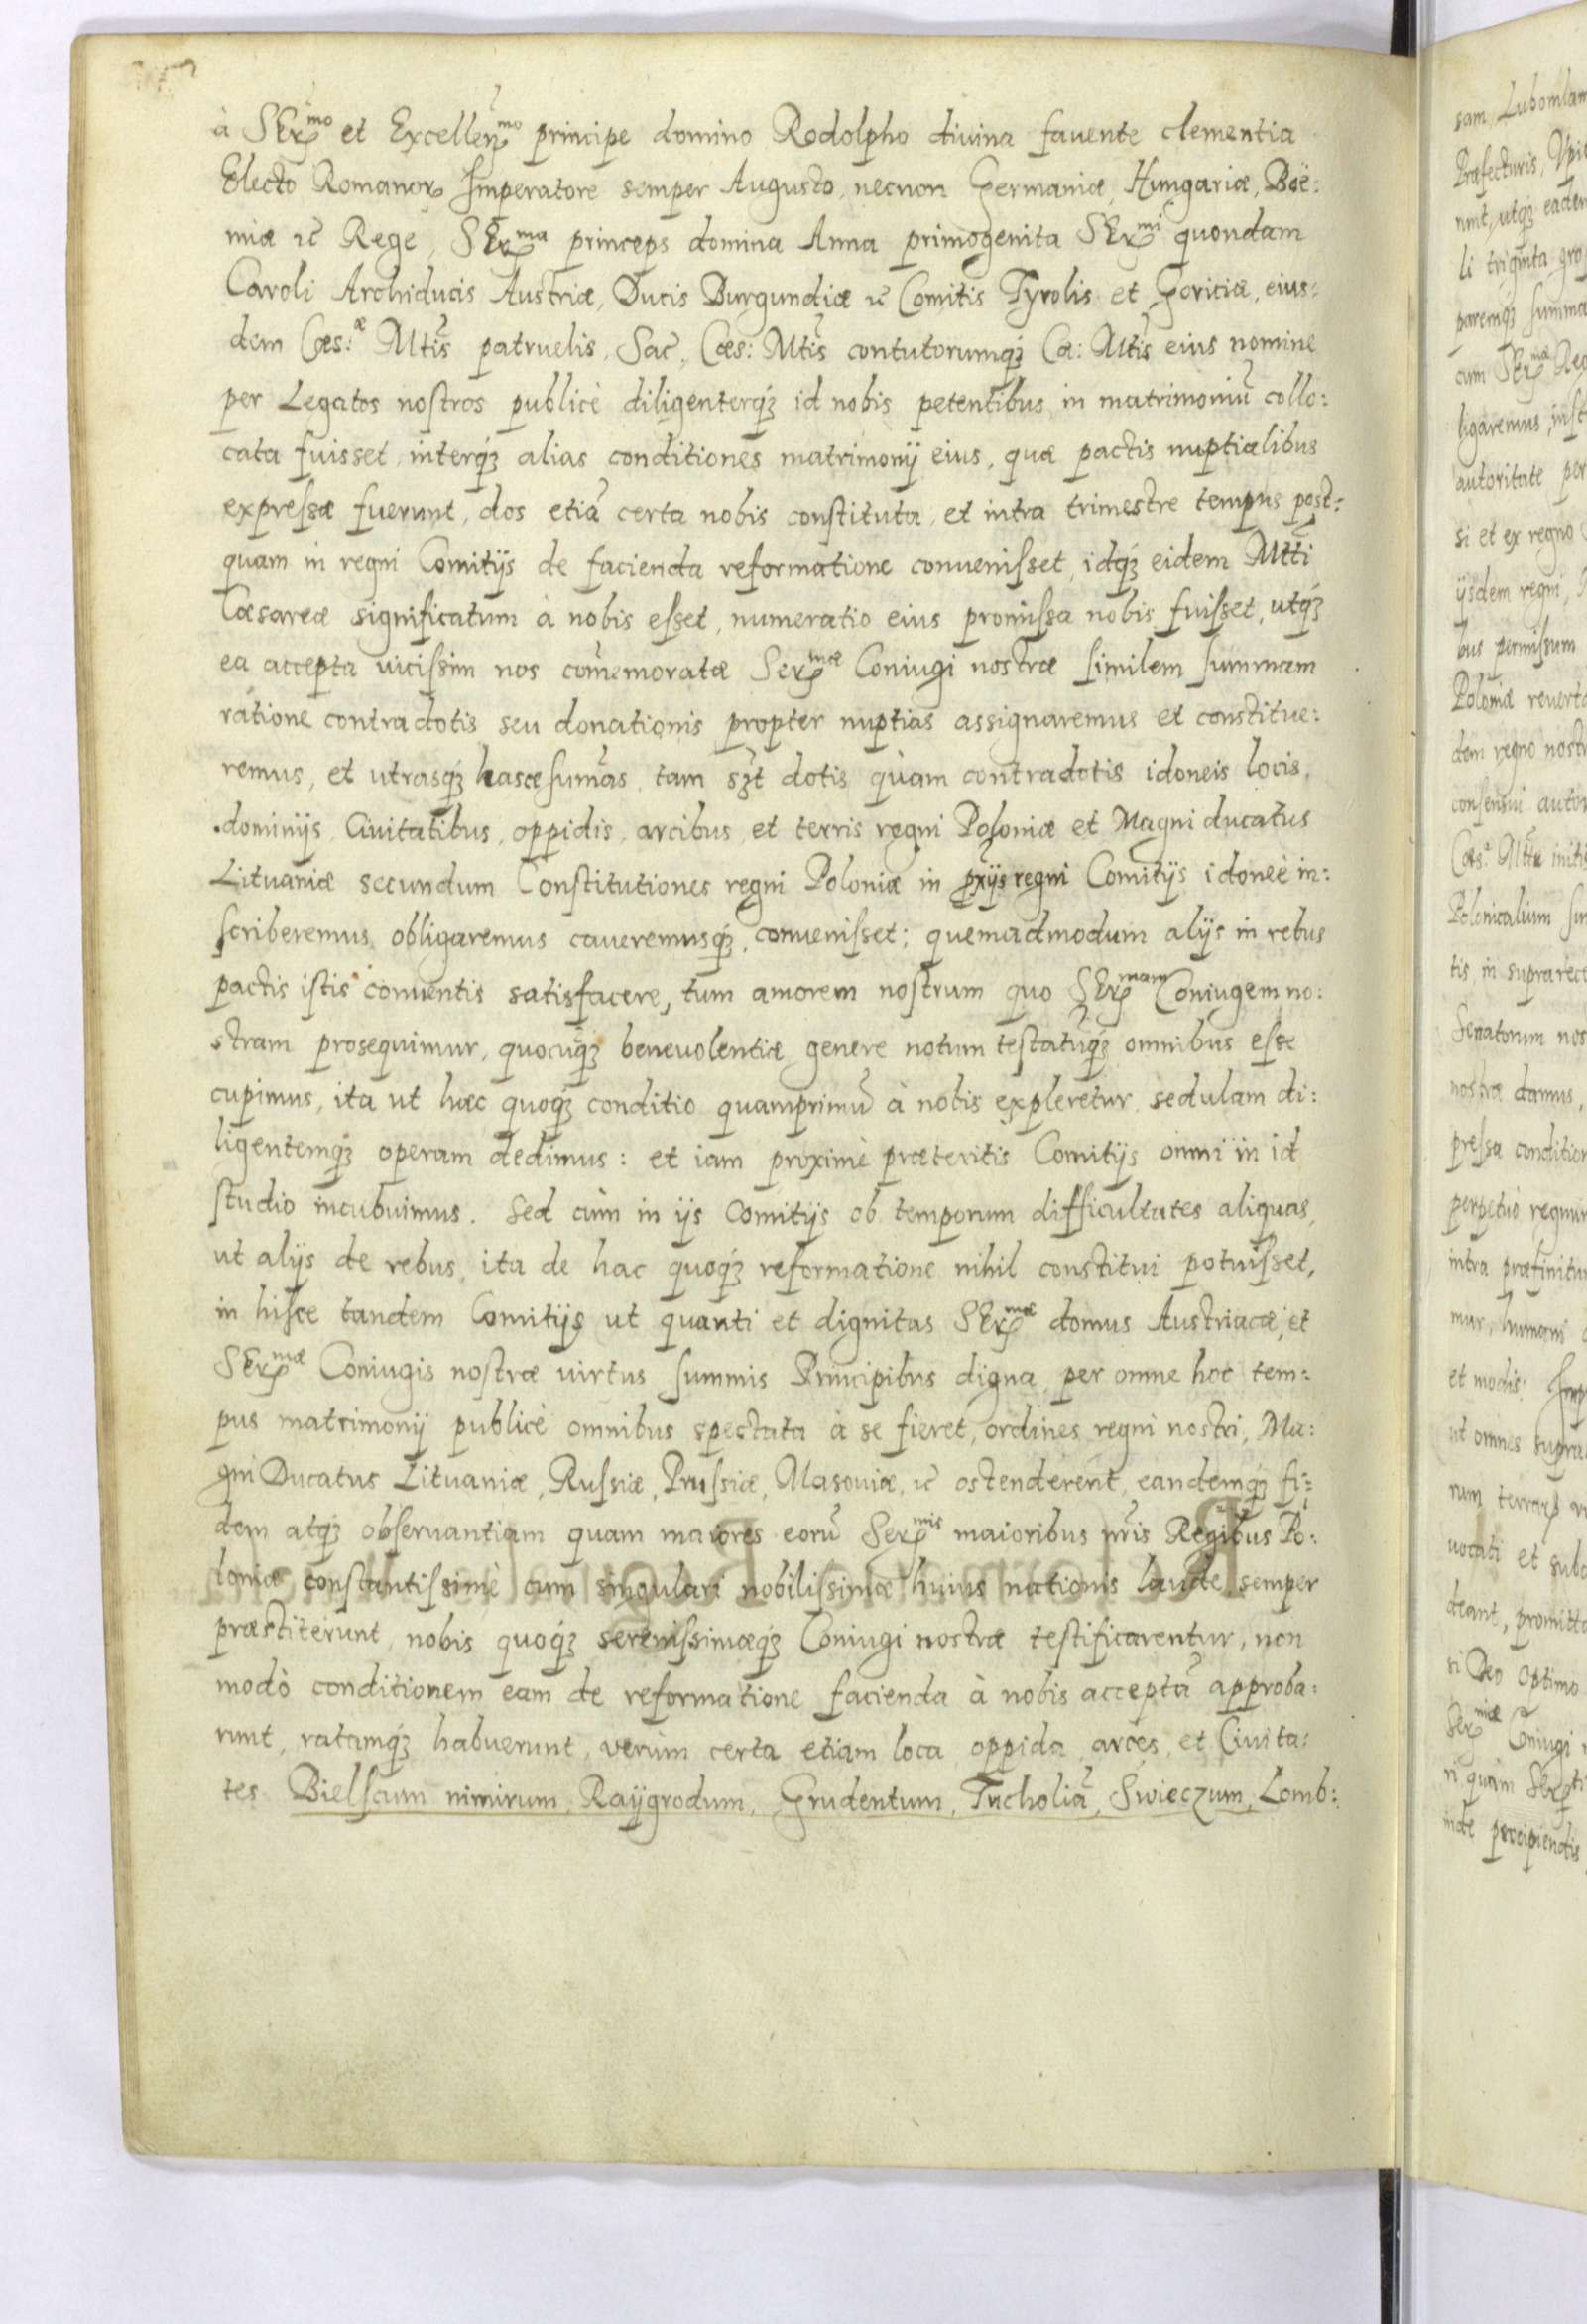 à SEr^mo et Excellen^mo principe domino Rodolpho divina favente clementia
Electo Romanor Imperatore semper Augusto, necnon Germaniæ, Hungariæ, Boë:
miæ ꝛc̄ Rege, SEr^ma princeps domina Anna primogenita SEr^mi quondam
Caroli Archiducis Austriæ, Ducis Burgundiæ ꝛc̄ Comitis Tyrolis et Goritiæ, eius:
dem Cæs:^æ Mtis patruelis, Sac. Cæs: Mtis contutorumqꝫ Ca: Mtis eius nomine
per Legatos nostros publicè diligenterqꝫ id nobis petentibus in matrimoniū collo:
cata fuisset, interqꝫ alias conditiones matrimonij eius, quæ pactis nuptialibus
expressæ fuerunt, dos etiā certa nobis constituta, et intra trimestre tempus post:
quam in regni Comitijs de facienda reformatione convenisset, idqꝫ eidem Mtti
Cæsareæ significatum à nobis esset, numeratio eius promissa nobis fuisset, utqꝫ
ea accepta vicissim nos com̄emoratæ Ser^mæ Coniugi nostræ similem summam
ratione contradotis seu donationis propter nuptias assignaremus et constitue:
remus, et utrasqꝫ hasce sum̄as, tam sꝫt dotis quàm contradotis idoneis locis,
dominijs, Civitatibus, oppidis, arcibus, et terris regni Poloniæ et Magni ducatus
Lituaniæ secundum Constitutiones regni Poloniæ in pxijs regni Comitijs idoneè in:
scriberemus, obligaremus caveremusqꝫ, convenisset; quemadmodum alijs in rebus
pactis istis conventis satisfacere, tum amorem nostrum quo SEr^mam Coniugem no:
stram prosequimur, quocūqꝫ benevolentiæ genere notum testatūqꝫ omnibus esse
cupimus, ita ut hæc quoqꝫ conditio quamprimū à nobis expleretur, sedulam di:
ligentemqꝫ operam dedimus: et iam proximè præteritis Comitijs omni in id
studio incubuimus. Sed cùm in ijs Comitijs ob temporum difficultates aliquas,
ut alijs de rebus, ita de hac quoqꝫ reformatione nihil constitui potuisset,
in hisce tandem Comitijs ut quanti et dignitas SEr^mæ domus Austriacæ, et
SEr^mæ Coniugis nostræ virtus summis Principibus digna, per omne hoc tem:
pus matrimonij publicè omnibus spectata à se fieret, ordines regni nostri, Ma:
gni Ducatus Lituaniæ, Russiæ, Prussiæ, Masoviæ, ꝛc̄ ostenderent, eandemqꝫ fi:
dem atqꝫ observantiam quam maiores eorū Ser^mis maioribus nr̄is Regibus Po:
loniæ constantissimè cum singulari nobilissimæ huius nationis laude semper
præstiterunt, nobis quoqꝫ serenissimæqꝫ Coniugi nostræ testificarentur, non
modò conditionem eam de reformatione facienda à nobis acceptā approba:
runt, ratamqꝫ habuerunt, verùm certa etiam loca, oppida, arces, et Civita:
tes Bielscum nimirum, Raygrodum, Grudentum, Tucholiā, Swieczum, Lomb:
sam, Lubomlam
Præfecturis, Upit
runt, utqꝫ eadem
li triginta gro
paremqꝫ summa
cum SEr^mæ Reg
ligaremus, inst
autoritate per
si et ex regno
ijsdem regni,
bus permissum
Poloniæ reverta
dem regno nostr
consensui autor
Cæs:^æ Mtie initis
Polonicalium
tis, in suprarect
Senatorum nos
nostræ damus,
pressa condition
perpetuò regnum
intra præfinitum
mur, humani
et modis: Imp
ut omnes supra
rum terrarp
vocati et subd
deant, promitto
ri Deo Optimo
Ser^mæ Coniugi
ri quàm Ser
inde percipiendis